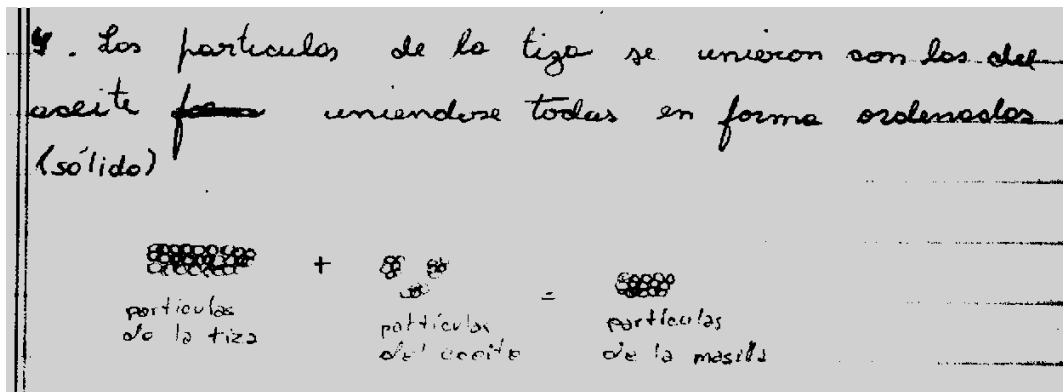 4. Las particulas de la tiza se unieron con las del
aceite uniendose todas en forma ordenadas
(sólido)
+ =
particulas
de la tiza
particulas
del aceite
partículas
de la masilla